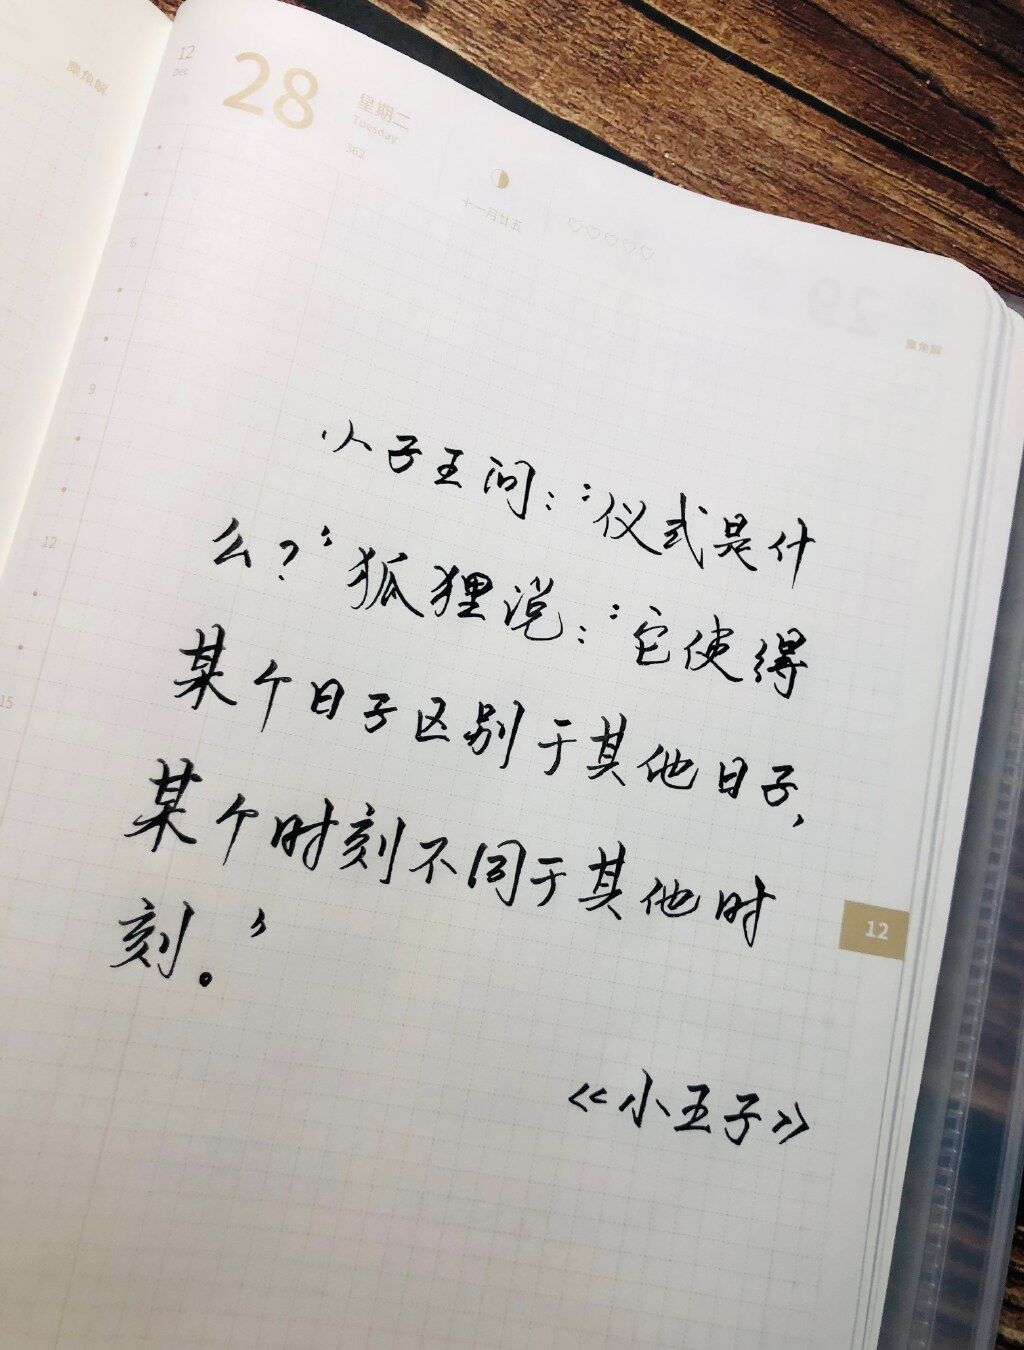 麋角解
12
Dec
28
星期二
Tuesday
362
十一月廿五
♡♡♡♡♡
29
麋角解
6
9
12
15
小子王问：“仪式是什
么？”狐狸说：“它使得
某个日子区别于其他日子，
某个时刻不同于其他时
刻。”
12
《小王子》